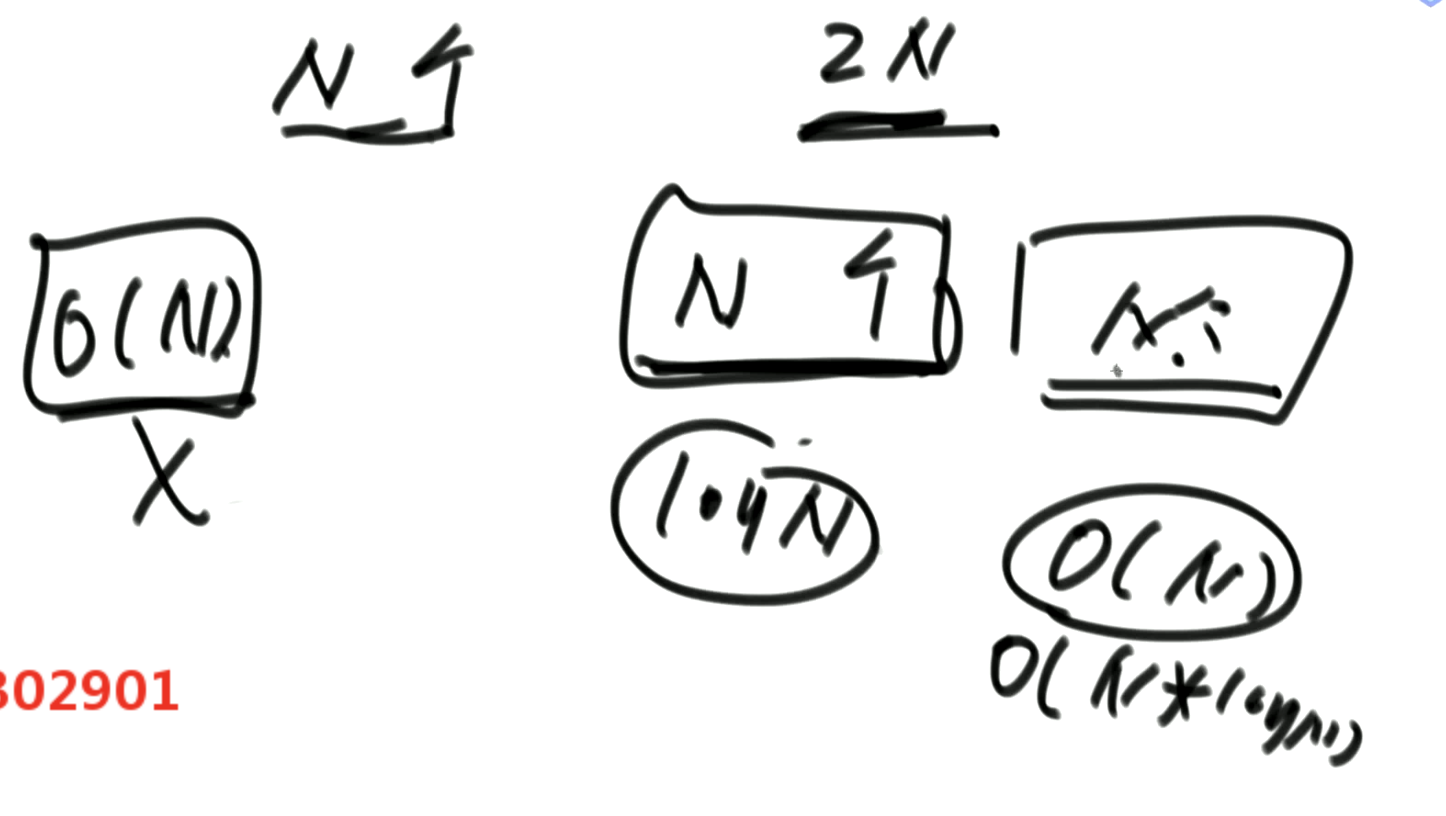 N 个
2N
O(N)
N 个
N个
logN
O(N)
O(N*logN)
302901